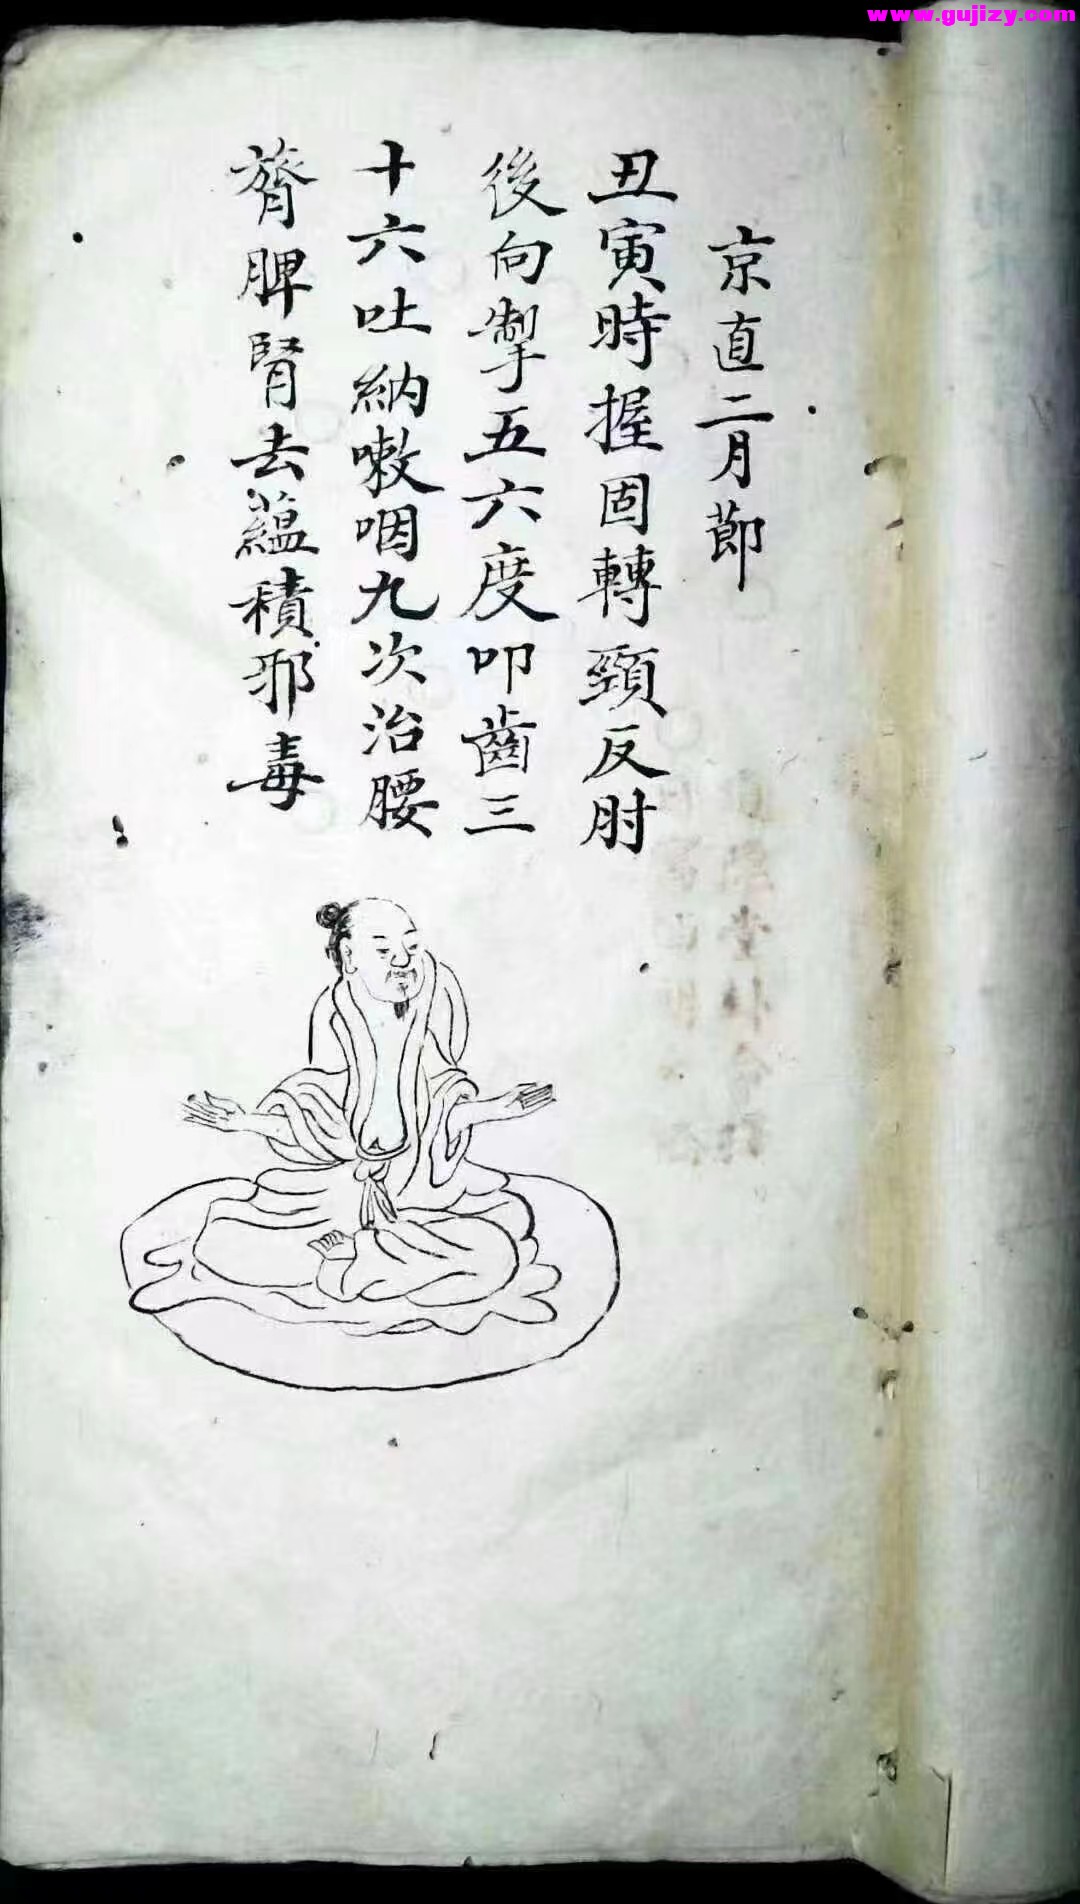 www.gujizy.com
京直二月節
丑寅時握固轉頸反肘
後向掣五六度叩齒三
十六吐納嗽咽九次治腰
膂脾腎去蘊積邪毒